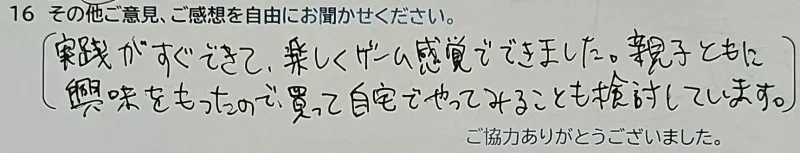 16 その他ご意見、ご感想を自由にお聞かせください。
(実践がすぐできて、楽しくゲーム感覚でできました。親子ともに
興味をもったので、買って自宅でやってみることも検討しています。)
ご協力ありがとうございました。